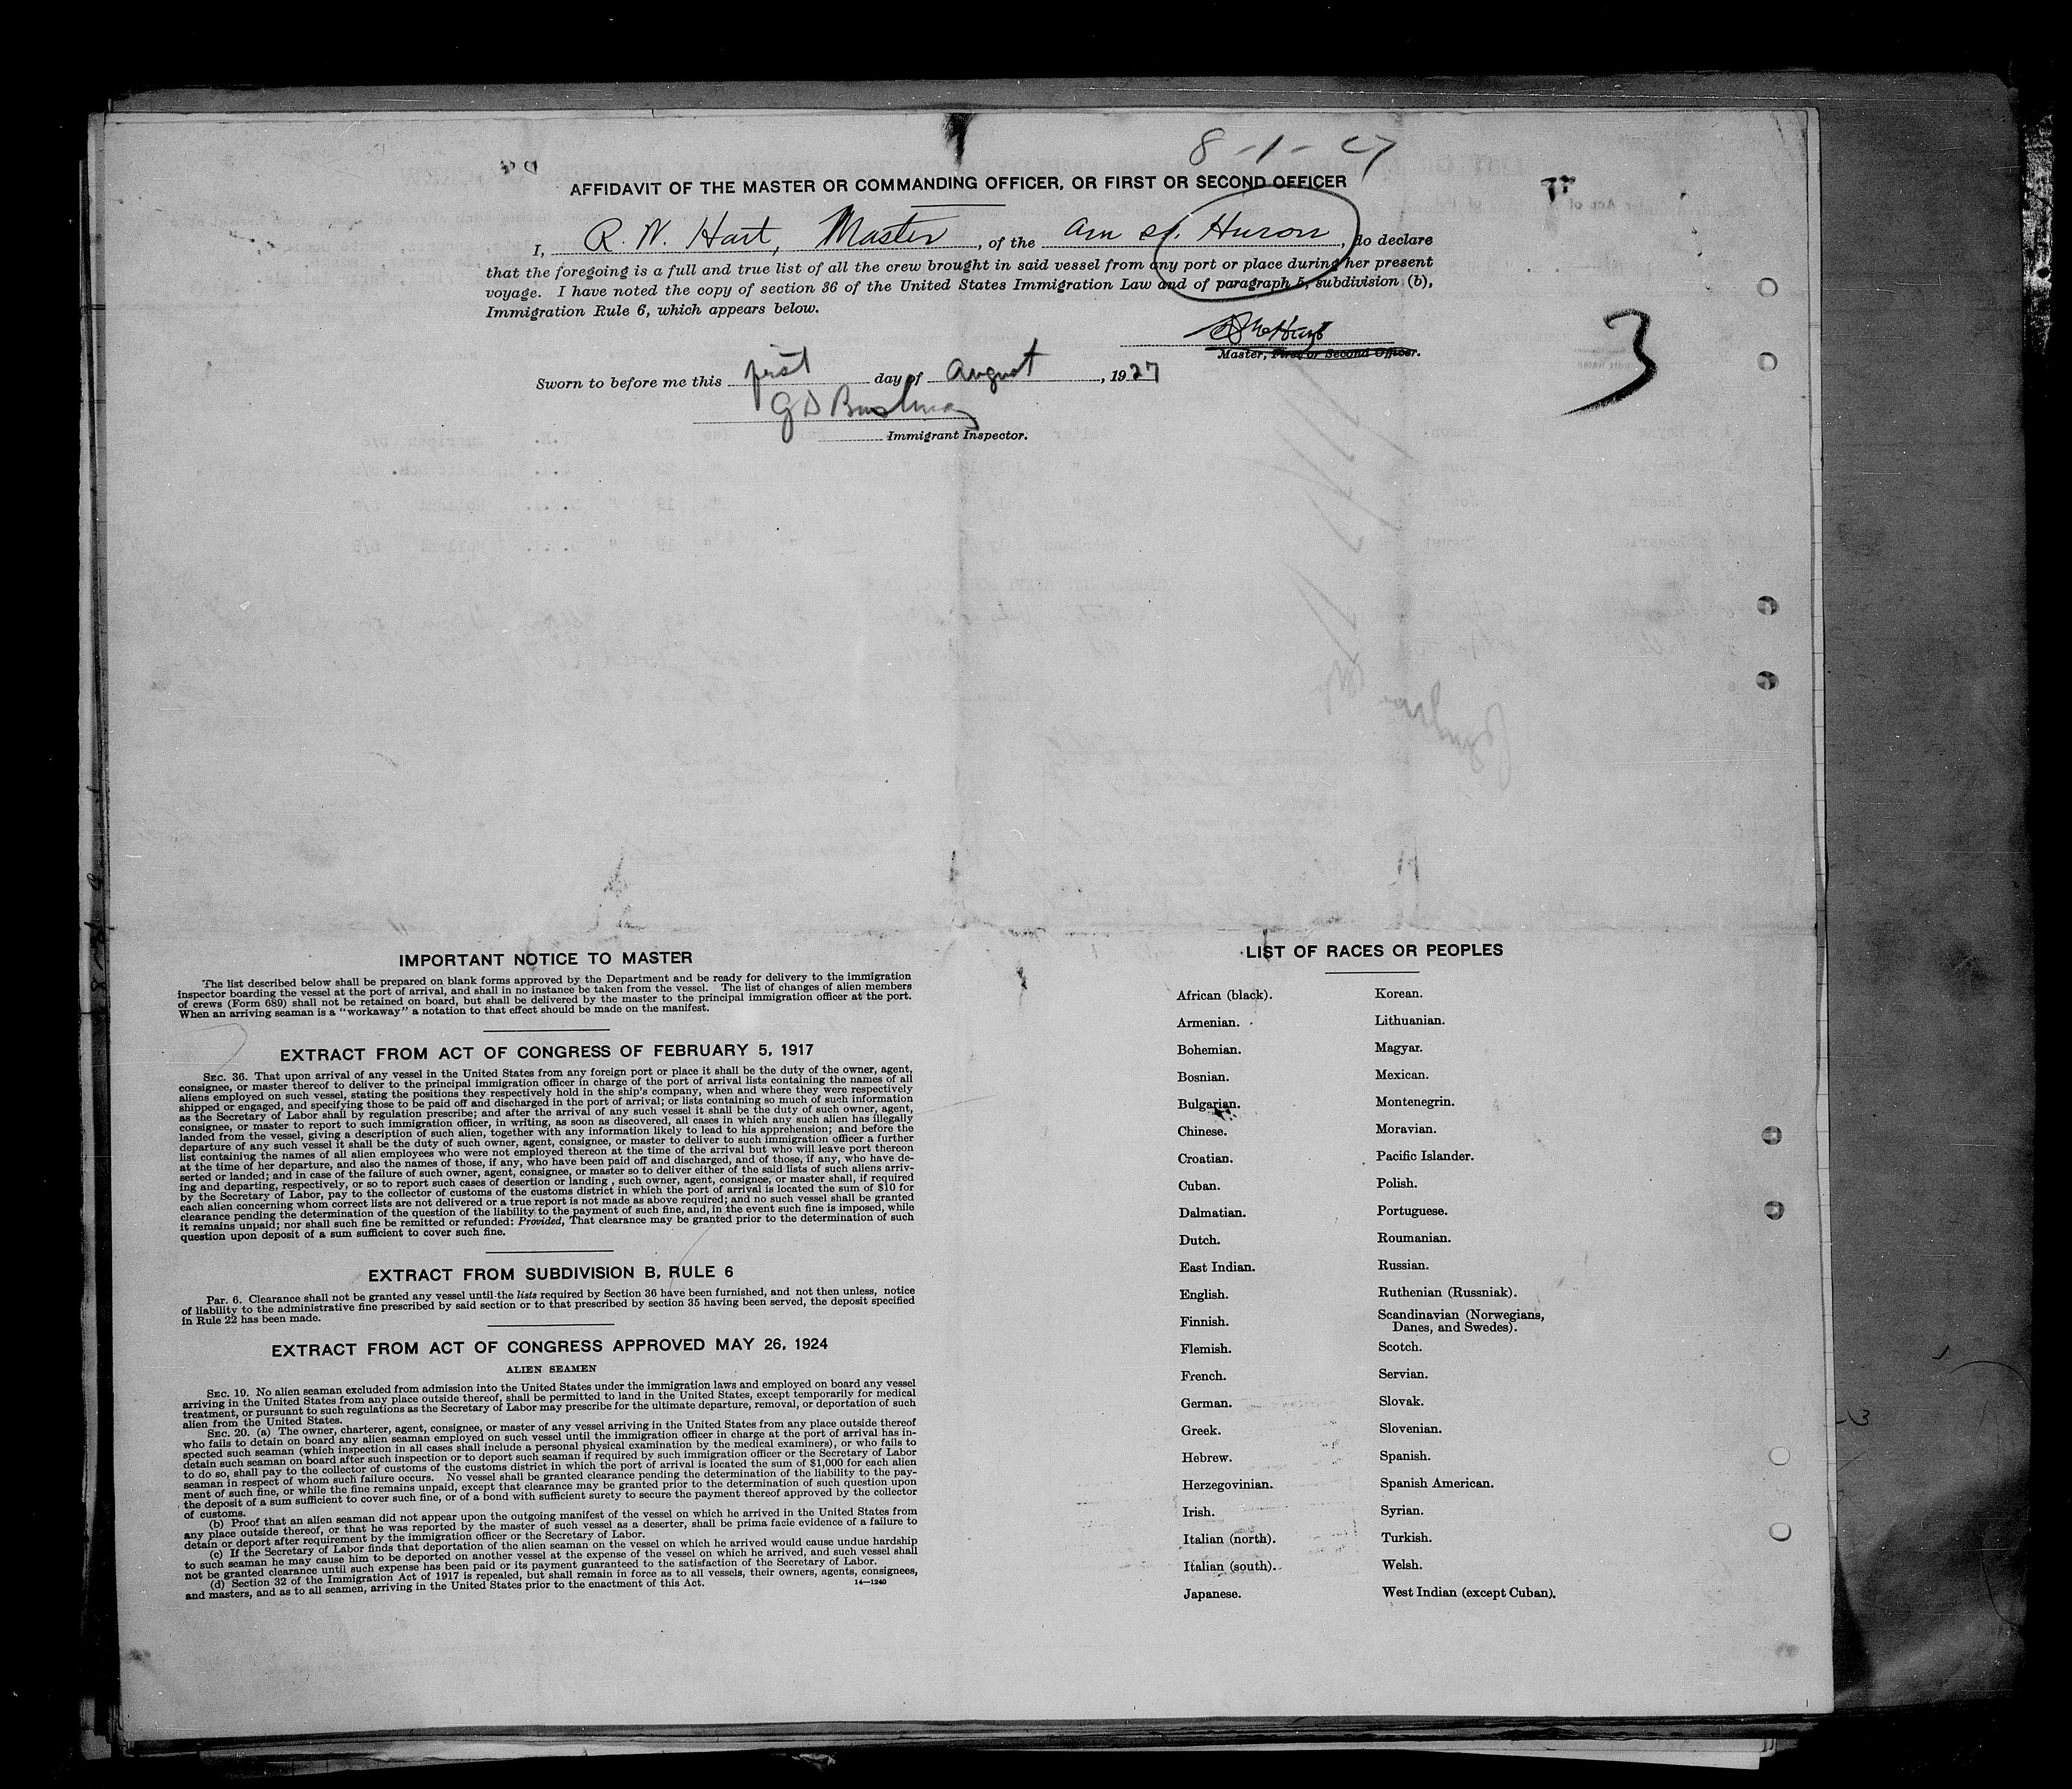 8-1-27
AFFIDAVIT OF THE MASTER OR COMMANDING OFFICER, OR FIRST OR SECOND OFFICER
I, R. W. Hart, Master, of the Am ss. Huron, do declare
that the foregoing is a full and true list of all the crew brought in said vessel from any port or place during her present
voyage. I have noted the copy of section 36 of the United States Immigration Law and of paragraph 5, subdivision (b),
Immigration Rule 6, which appears below.
3
Master, First or Second Officer.
Sworn to before me this first day of August, 1927
Immigrant Inspector.
IMPORTANT NOTICE TO MASTER
The list described below shall be prepared on blank forms approved by the Department and be ready for delivery to the immigration
inspector boarding the vessel at the port of arrival, and shall in no instance be taken from the vessel. The list of changes of alien members
of crews (Form 689) shall not be retained on board, but shall be delivered by the master to the principal immigration officer at the port.
When an arriving seaman is a "workaway" a notation to that effect should be made on the manifest.
EXTRACT FROM ACT OF CONGRESS OF FEBRUARY 5, 1917
SEC. 36. That upon arrival of any vessel in the United States from any foreign port or place it shall be the duty of the owner, agent,
consignee, or master thereof to deliver to the principal immigration officer in charge of the port of arrival lists containing the names of all
aliens employed on such vessel, stating the positions they respectively hold in the ship's company, when and where they were respectively
shipped or engaged, and specifying those to be paid off and discharged in the port of arrival; or lists containing so much of such information
as the Secretary of Labor shall by regulation prescribe; and after the arrival of any such vessel it shall be the duty of such owner, agent,
consignee, or master to report to such immigration officer, in writing, as soon as discovered, all cases in which any such alien has illegally
landed from the vessel, giving a description of such alien, together with any information likely to lead to his apprehension; and before the
departure of any such vessel it shall be the duty of such owner, agent, consignee, or master to deliver to such immigration officer a further
list containing the names of all alien employees who were not employed thereon at the time of the arrival but who will leave port thereon
at the time of her departure, and also the names of those, if any, who have been paid off and discharged, and of those, if any, who have de-
serted or landed; and in case of the failure of such owner, agent, consignee, or master so to deliver either of the said lists of such aliens arriv-
ing and departing, respectively, or so to report such cases of desertion or landing, such owner, agent, consignee, or master shall, if required
by the Secretary of Labor, pay to the collector of customs of the customs district in which the port of arrival is located the sum of $10 for
each alien concerning whom correct lists are not delivered or a true report is not made as above required; and no such vessel shall be granted
clearance pending the determination of the question of the liability to the payment of such fine, and, in the event such fine is imposed, while
it remains unpaid; nor shall such fine be remitted or refunded: Provided, That clearance may be granted prior to the determination of such
question upon deposit of a sum sufficient to cover such fine.
EXTRACT FROM SUBDIVISION B, RULE 6
Par. 6. Clearance shall not be granted any vessel until the lists required by Section 36 have been furnished, and not then unless, notice
of liability to the administrative fine prescribed by said section or to that prescribed by section 35 having been served, the deposit specified
in Rule 22 has been made.
EXTRACT FROM ACT OF CONGRESS APPROVED MAY 26, 1924
ALIEN SEAMEN
SEC. 19. No alien seaman excluded from admission into the United States under the immigration laws and employed on board any vessel
arriving in the United States from any place outside thereof, shall be permitted to land in the United States, except temporarily for medical
treatment, or pursuant to such regulations as the Secretary of Labor may prescribe for the ultimate departure, removal, or deportation of such
alien from the United States.
SEC. 20. (a) The owner, charterer, agent, consignee, or master of any vessel arriving in the United States from any place outside thereof
who fails to detain on board any alien seaman employed on such vessel until the immigration officer in charge at the port of arrival has in-
spected such seaman (which inspection in all cases shall include a personal physical examination by the medical examiners), or who fails to
detain such seaman on board after such inspection or to deport such seaman if required by such immigration officer or the Secretary of Labor
to do so, shall pay to the collector of customs of the customs district in which the port of arrival is located the sum of $1,000 for each alien
seaman in respect of whom such failure occurs. No vessel shall be granted clearance pending the determination of the liability to the pay-
ment of such fine, or while the fine remains unpaid, except that clearance may be granted prior to the determination of such question upon
the deposit of a sum sufficient to cover such fine, or of a bond with sufficient surety to secure the payment thereof approved by the collector
of customs.
(b) Proof that an alien seaman did not appear upon the outgoing manifest of the vessel on which he arrived in the United States from
any place outside thereof, or that he was reported by the master of such vessel as a deserter, shall be prima facie evidence of a failure to
detain or deport after requirement by the immigration officer or the Secretary of Labor.
(c) If the Secretary of Labor finds that deportation of the alien seaman on the vessel on which he arrived would cause undue hardship
to such seaman he may cause him to be deported on another vessel at the expense of the vessel on which he arrived, and such vessel shall
not be granted clearance until such expense has been paid or its payment guaranteed to the satisfaction of the Secretary of Labor.
(d) Section 32 of the Immigration Act of 1917 is repealed, but shall remain in force as to all vessels, their owners, agents, consignees,
and masters, and as to all seamen, arriving in the United States prior to the enactment of this Act.
14—1240
LIST OF RACES OR PEOPLES
African (black).
Armenian.
Bohemian.
Bosnian.
Bulgarian.
Chinese.
Croatian.
Cuban.
Dalmatian.
Dutch.
East Indian.
English.
Finnish.
Flemish.
French.
German.
Greek.
Hebrew.
Herzegovinian.
Irish.
Italian (north).
Italian (south).
Japanese.
Korean.
Lithuanian.
Magyar.
Mexican.
Montenegrin.
Moravian.
Pacific Islander.
Polish.
Portuguese.
Roumanian.
Russian.
Ruthenian (Russniak).
Scandinavian (Norwegians,
Danes, and Swedes).
Scotch.
Servian.
Slovak.
Slovenian.
Spanish.
Spanish American.
Syrian.
Turkish.
Welsh.
West Indian (except Cuban).